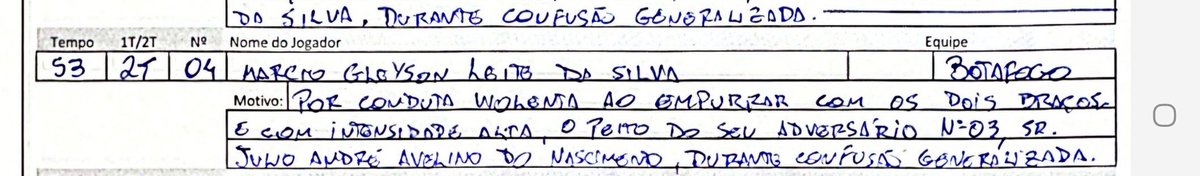 DA SILVA, DURANTE CONFUSÃO GENERALIZADA.
Tempo 1T/2T Nº Nome do Jogador Equipe
53 2T 04 MARCIO GLEYSON LEITE DA SILVA BOTAFOGO
Motivo: POR CONDUTA VIOLENTA AO EMPURRAR COM OS DOIS BRAÇOS
E COM INTENSIDADE ALTA, O PEITO DO SEU ADVERSÁRIO Nº 03, SR.
JULIO ANDRÉ AVELINO DO NASCIMENTO, DURANTE CONFUSÃO GENERALIZADA.